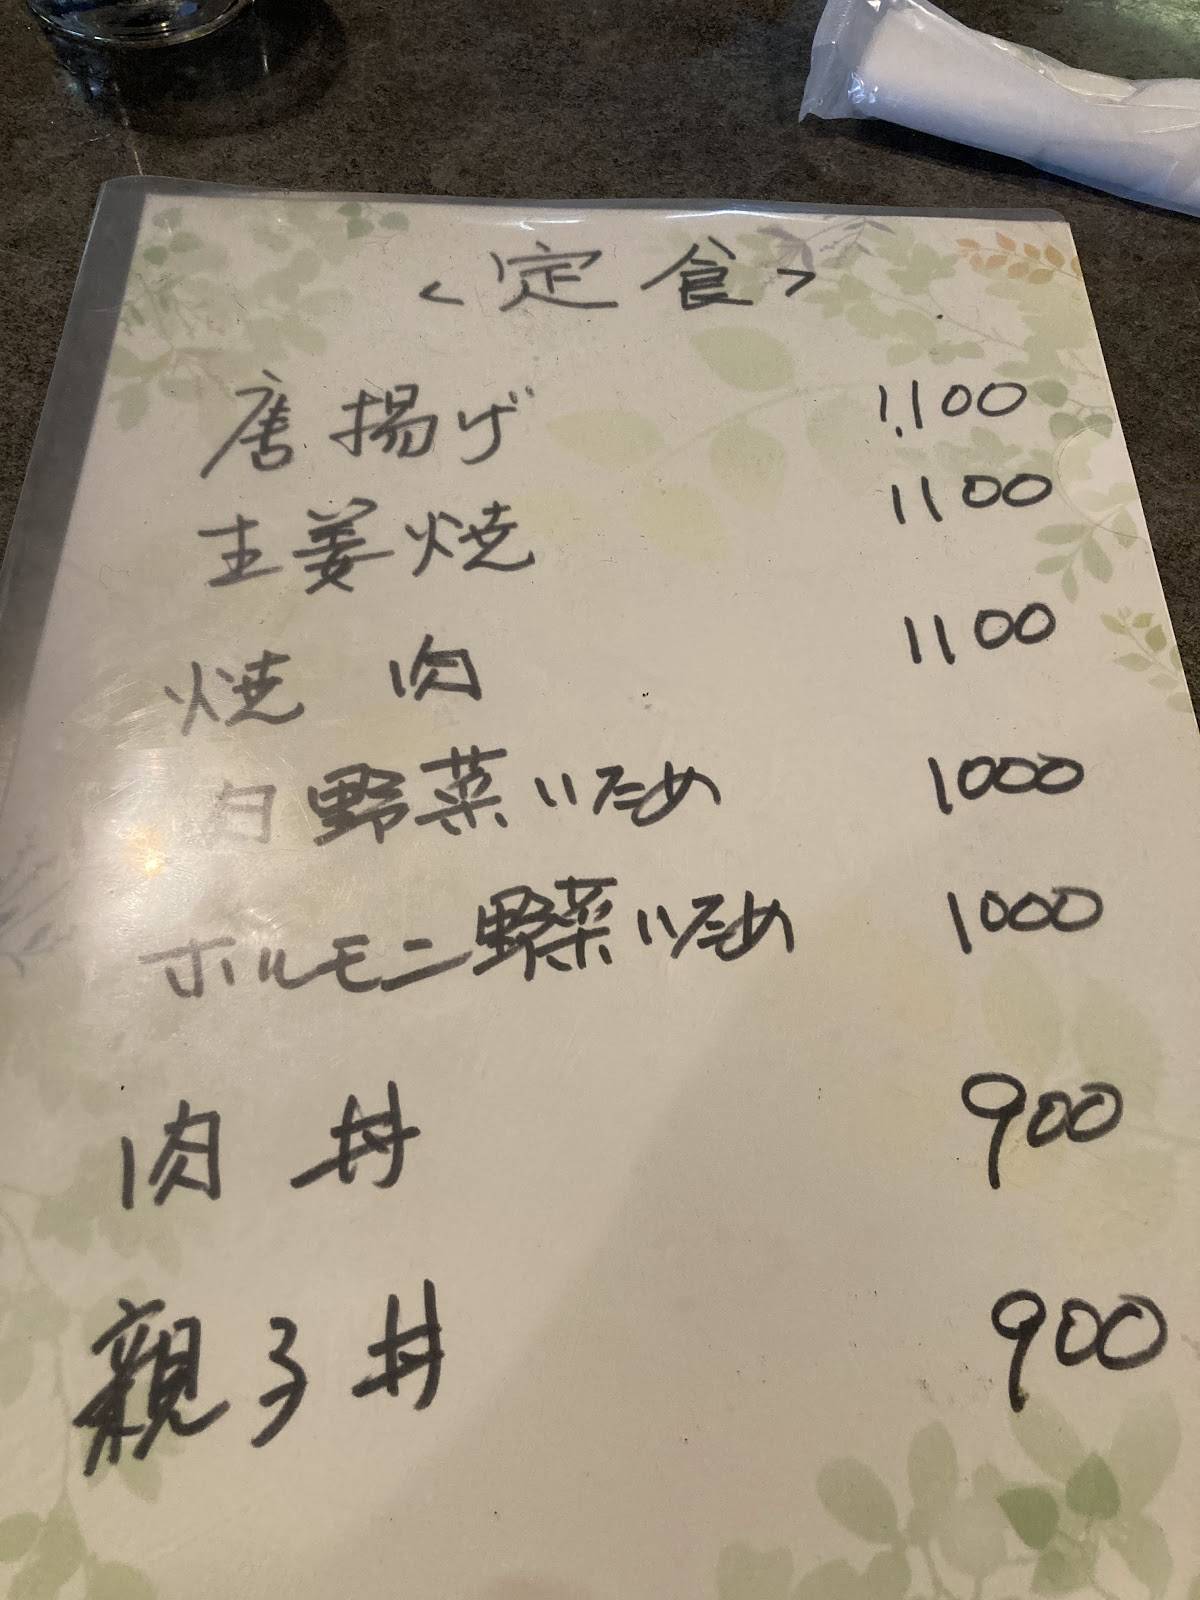 <定食>
唐揚げ 1,100
生姜焼 1100
焼肉 1100
肉野菜いため 1000
ホルモン野菜いため 1000
肉丼 900
親子丼 900